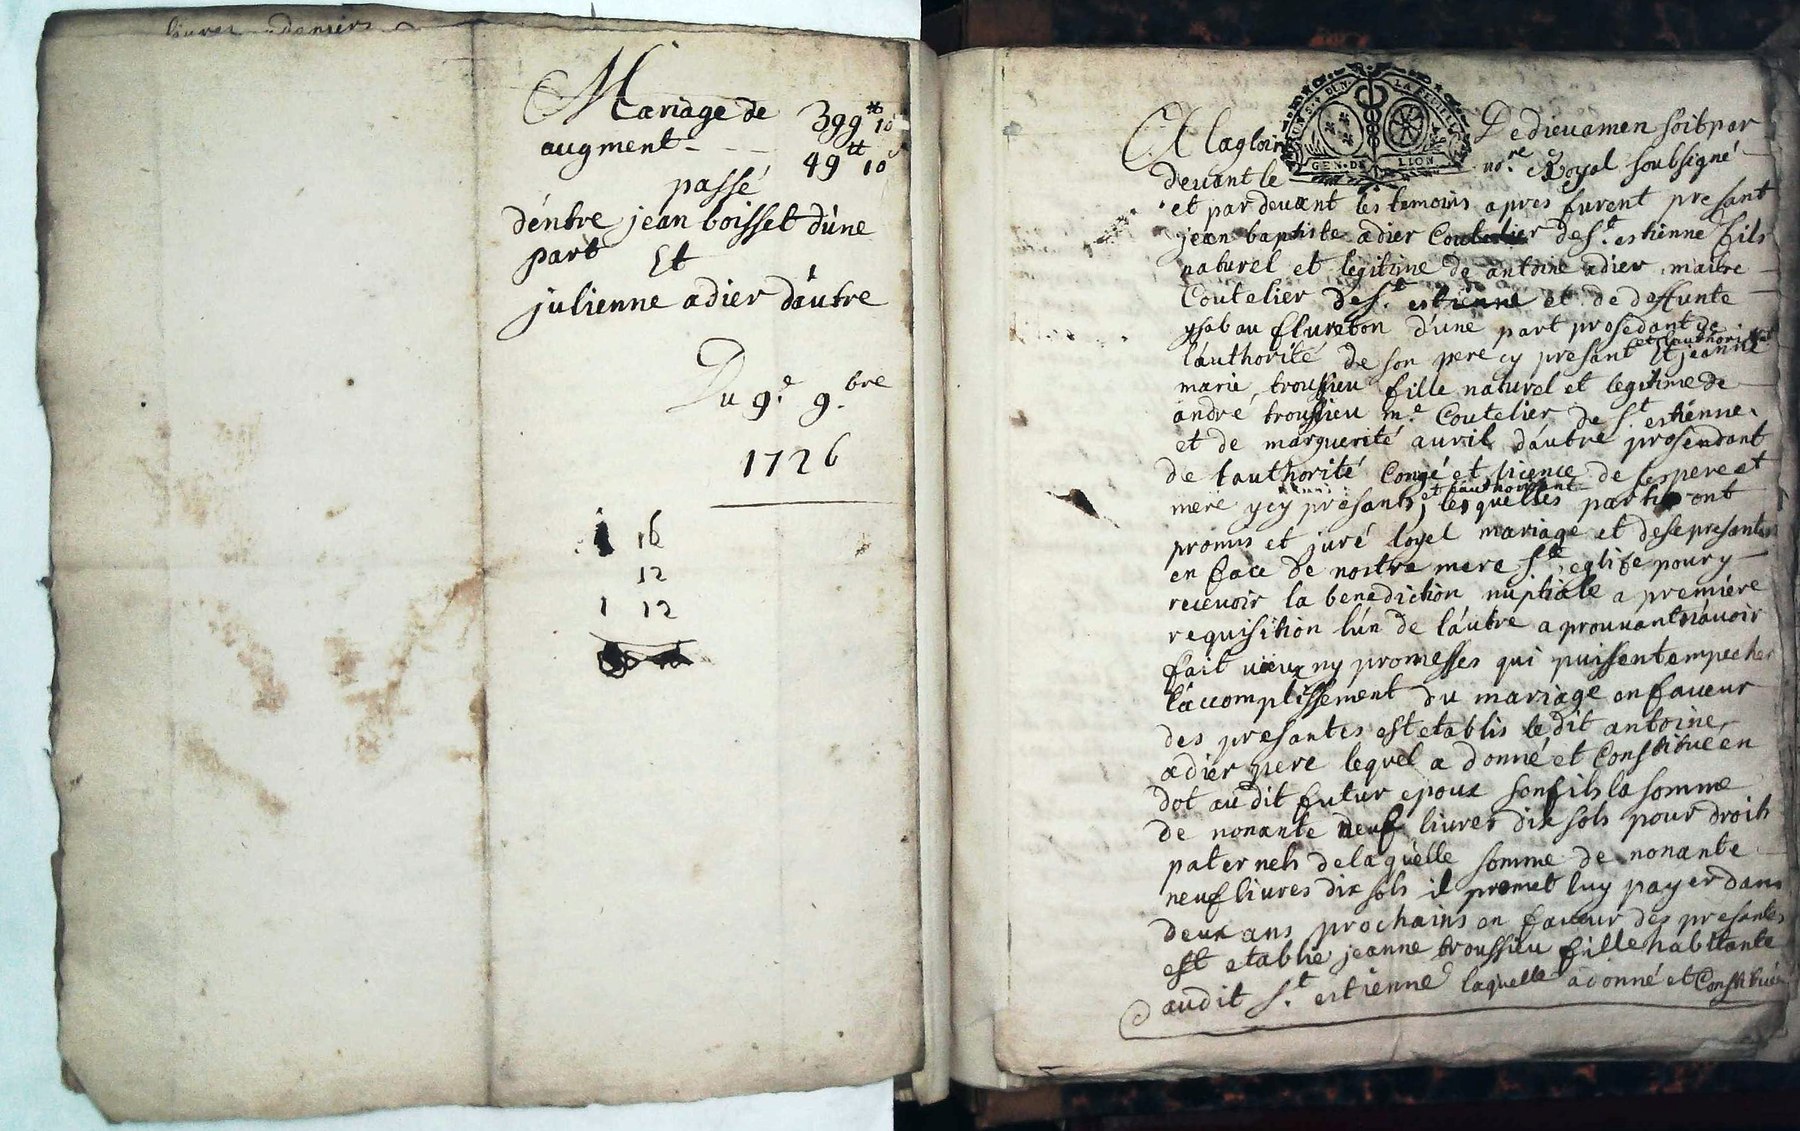 livres deniers
Mariage de 399 tt 10 s
augment - - - 49 tt 10 s
passé
d'entre jean boisset d'une
part Et
julienne adier d'autre
Du 9e 9.bre
1726
16
12
1 12
A la gloire De dieu amen soit par
UN S. 4 DEN. LA FEUILLE
GEN. DE LION
devant le no.re Royal soubsigné
et par devant les temoins apres furent presant
jean baptiste adier Coutelier de St. estienne fils
naturel et legitime de antoine adier maitre
Coutelier de St. estienne et de deffunte
ysabau flureton d'une part prosedant de
l'authorité de son pere cy presant et l'authorisant Et jeanne
marie troussieu fille naturel et legitime de
andré troussieu m.e Coutelier de St. estienne
et de marguerite avril d'autre prosendant
de l'authorité Congé et licence de ses pere et
mere ycy presants, et l'authorisant lesquelles parties ont
promis et juré loyel mariage et de se presanter
en face de nostre mere Ste eglise pour y
recevoir la benediction nuptiale a premiére
requisition l'un de l'autre aprouvant n'avoir
fait vieux ny promesses qui puissent empecher
l'accomplissement du mariage en faveur
des presantes est etablis le dit antoine
adier pere lequel a donné et Constitué en
dot au dit futur epoux son fils la somme
de nonante neuf livres dix sols pour droits
paternels de laquelle somme de nonante
neuf livres dix sols il promet luy payer dans
deux ans prochains en faveur des presantes
est etablie jeanne troussieu fille habitante
audit St. estienne laquelle a donné et Constitué